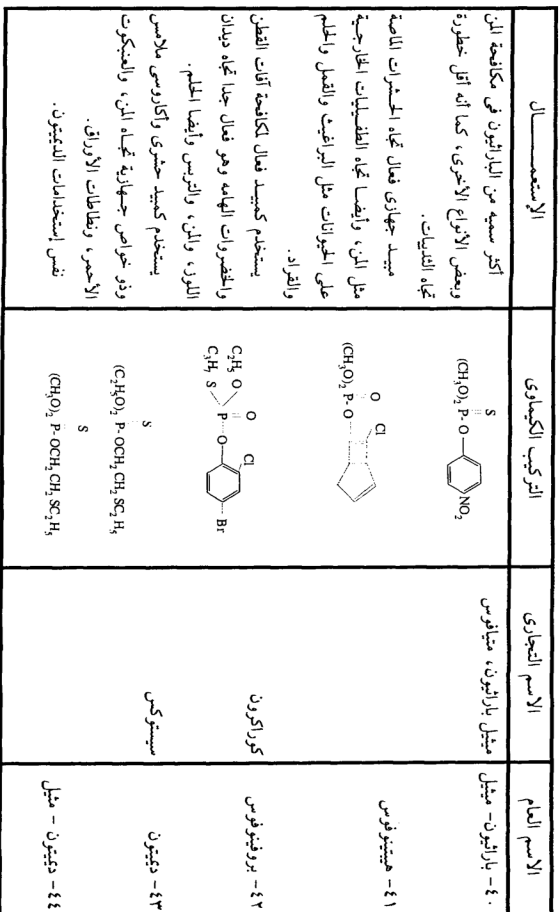 الاسم العام
الاسم التجارى
التركيب الكيماوى
الإستعمـــــــال
٤٠- باراثيون- ميثيل
ميثيل باراثيون، متيافوس
S
(CH₃O)₂ P- O
NO₂
أكثر سميه من الباراثيون فى مكافحة المن
وبعض الأنواع الأخرى، كما أنه أقل خطورة
تجاه الثدييات.
٤١- هيبتينوفوس
O
Cl
(CH₃O)₂ P- O
مبيد جهازى فعال تجاه الحشرات الماصة
مثل المن، وأيضا تجاه الطفيليات الخارجية
على الحيوانات مثل البراغيث والقمل والحلم
والقراد.
٤٢- بروفينوفوس
كوراكرون
C₂H₅ O
O
C₃H₇ S
P
O
Cl
Br
يستخدم كمبيد فعال لمكافحة آفات القطن
والخضروات الهامه وهو فعال جدا تجاه ديدان
اللوز، والمن، والتربس وأيضا الحلم.
٤٣- ديميتون
سيستوكس
S
(C₂H₅O)₂ P- OCH₂ CH₂ SC₂ H₅
يستخدم كمبيد حشرى وأكاروسى ملامس
وذو خواص جهازية تجاه المن، والعنبكوت
الأحمر، ونطاطات الأوراق.
٤٤- ديميتون - مثيل
S
(CH₃O)₂ P- OCH₂ CH₂ SC₂ H₅
نفس إستخدامات الديميتون.